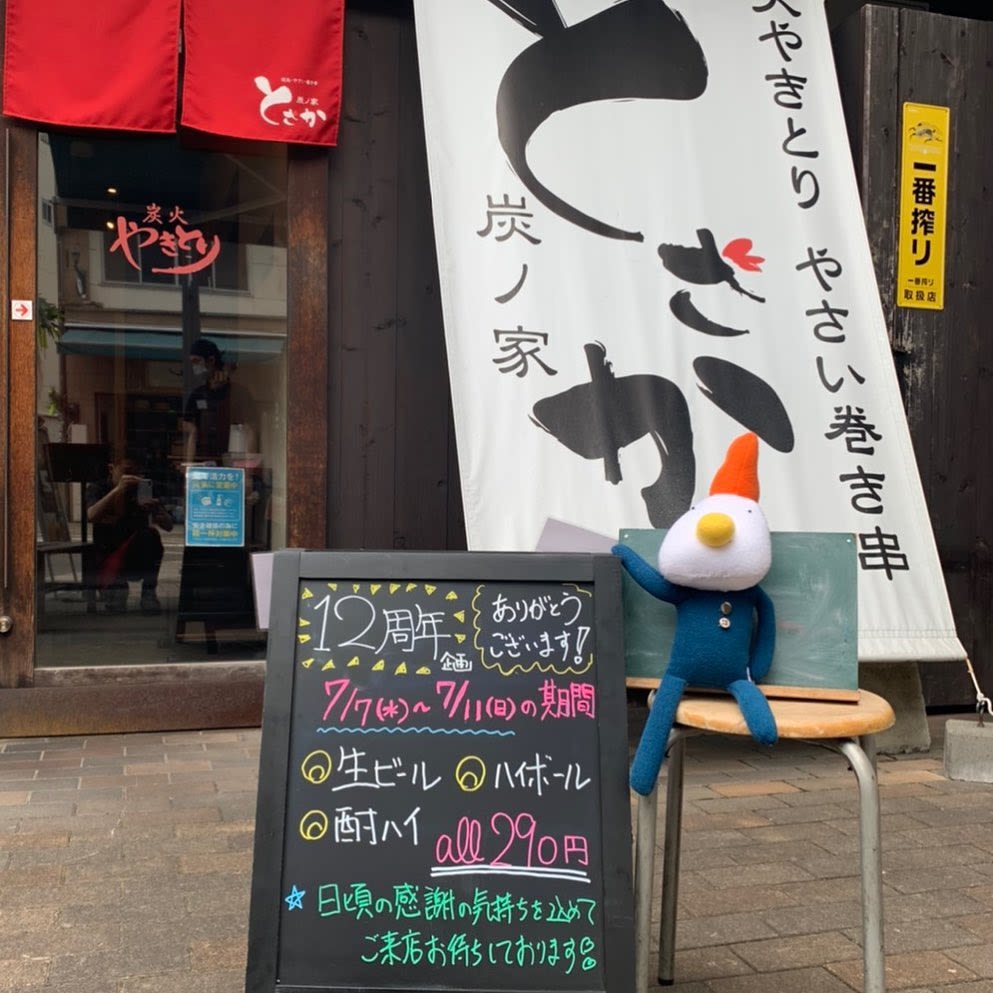 炭ノ家
とさか
炭火
やきとり
とさか
炭ノ家
火やきとり やさい巻き串
一番搾り
一番搾り
取扱店
12周年
企画
ありがとう
ございます!
7/7(水)~7/11(日)の期間
生ビール ハイボール
酎ハイ
all 290円
☆日頃の感謝の気持ちを込めて
ご来店お待ちしております